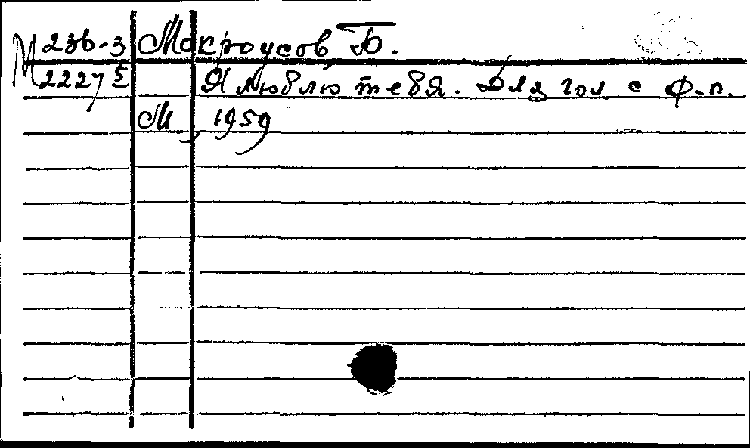 М 236-3 Мокроусов Б.
М 2227 Я люблю тебя. Для гол с ф.-п.
М, 1959